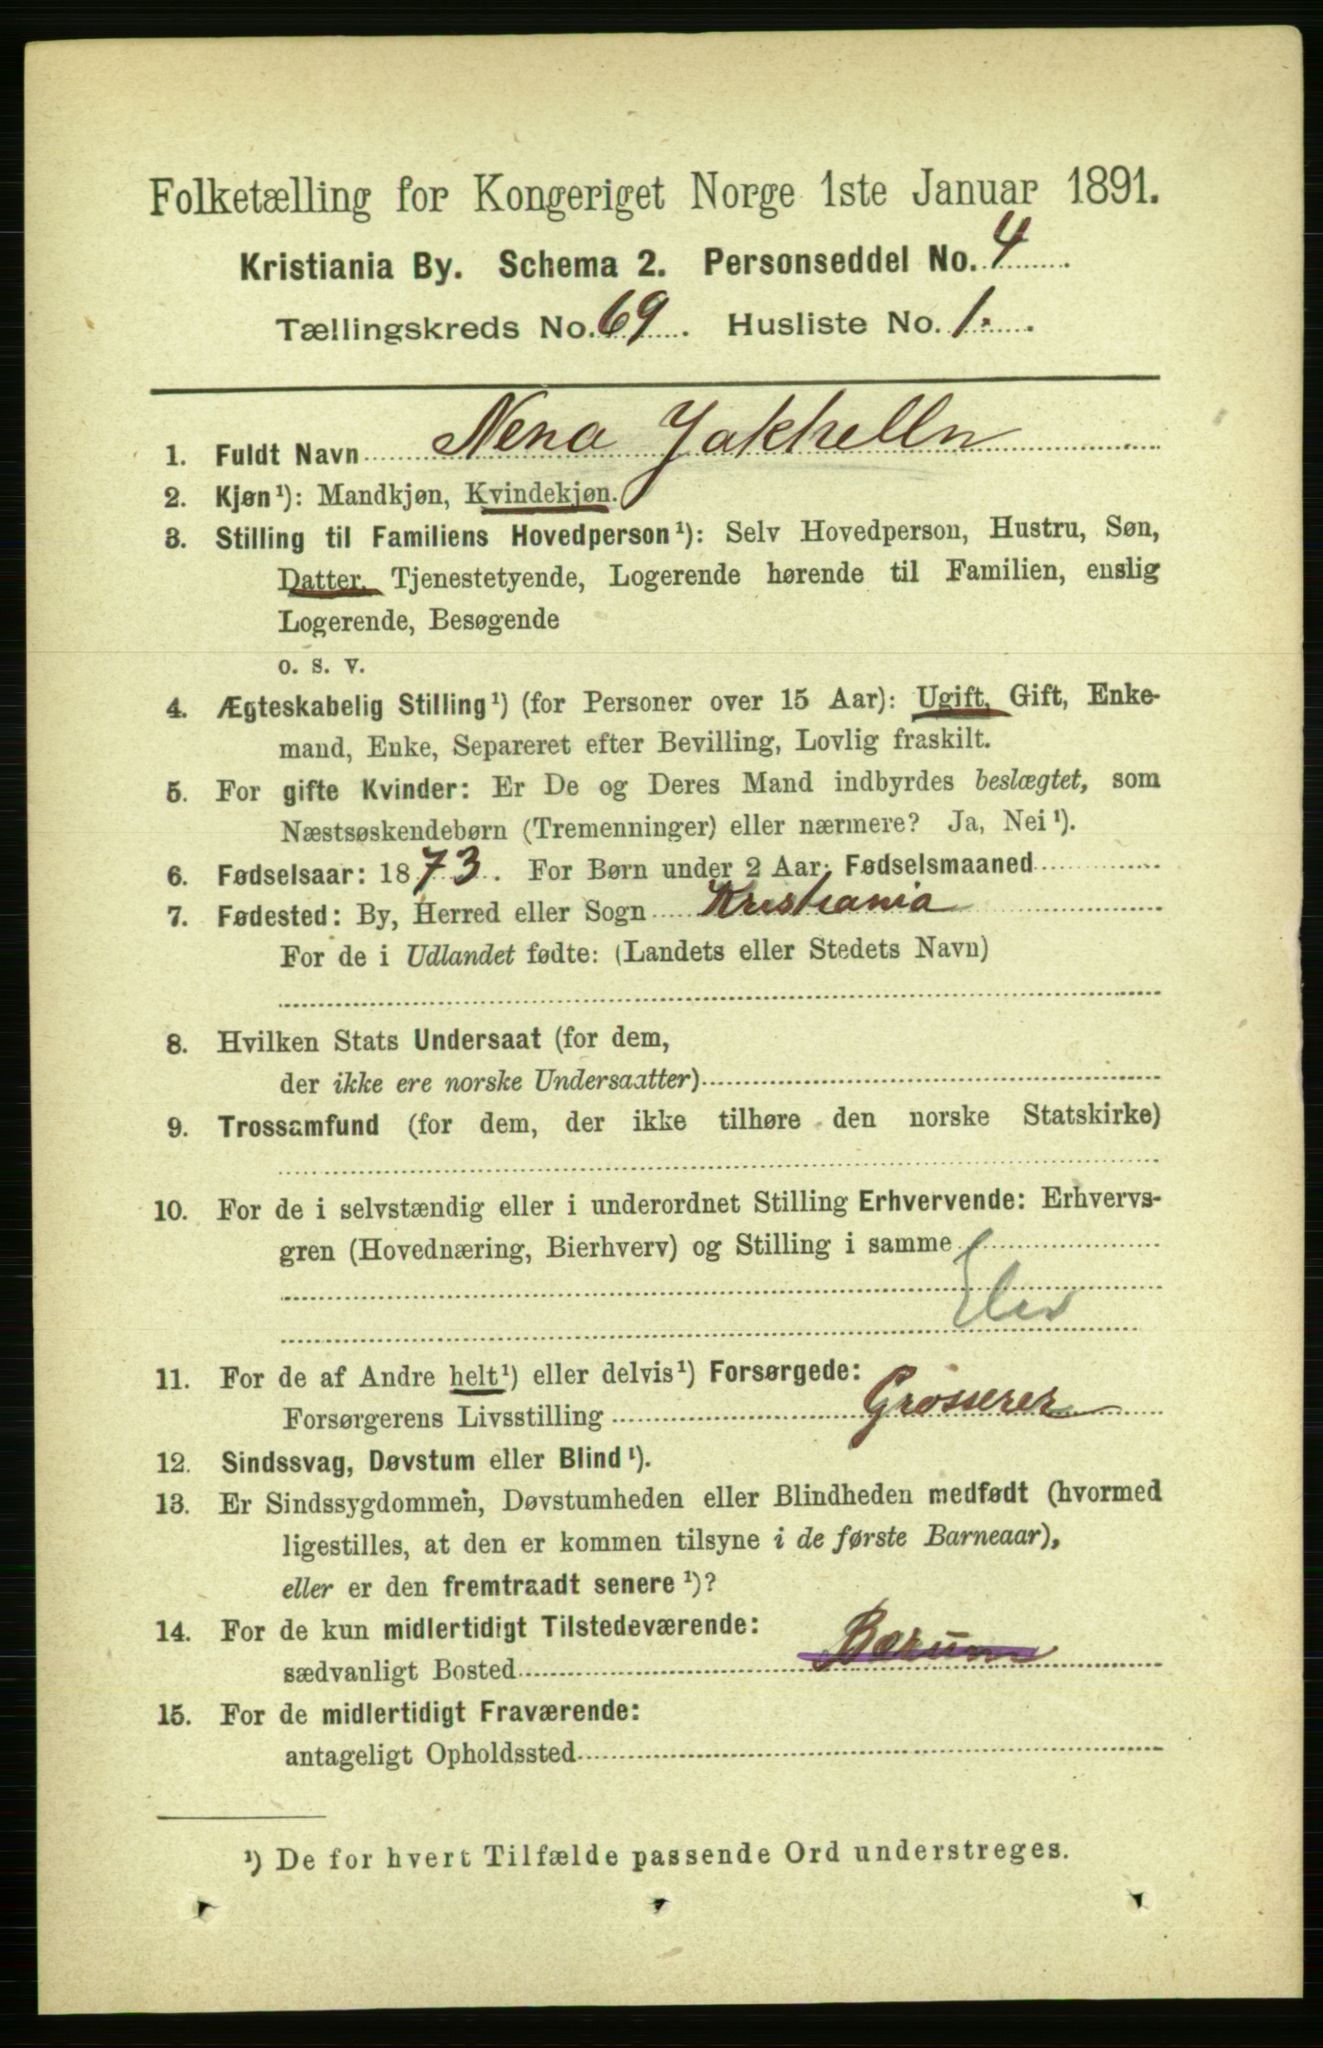 Folketælling for Kongeriget Norge 1ste Januar 1891.
Kristiania By. Schema 2. Personseddel No. 4
Tællingskreds No. 69. Husliste No. 1.
1. Fuldt Navn Nena Jakhelln
2. Kjøn¹): Mandkjøn, Kvindekjøn.
3. Stilling til Familiens Hovedperson¹): Selv Hovedperson, Hustru, Søn,
Datter, Tjenestetyende, Logerende hørende til Familien, enslig
Logerende, Besøgende
o. s. v.
4. Ægteskabelig Stilling¹) (for Personer over 15 Aar): Ugift, Gift, Enke-
mand, Enke, Separeret efter Bevilling, Lovlig fraskilt.
5. For gifte Kvinder: Er De og Deres Mand indbyrdes beslægtet, som
Næstsøskendebørn (Tremenninger) eller nærmere? Ja, Nei¹).
6. Fødselsaar: 1873. For Børn under 2 Aar: Fødselsmaaned
7. Fødested: By, Herred eller Sogn Kristiania
For de i Udlandet fødte: (Landets eller Stedets Navn)
8. Hvilken Stats Undersaat (for dem,
der ikke ere norske Undersaatter)
9. Trossamfund (for dem, der ikke tilhøre den norske Statskirke)
10. For de i selvstændig eller i underordnet Stilling Erhvervende: Erhvervs-
gren (Hovednæring, Bierhverv) og Stilling i samme
Elev
11. For de af Andre helt¹) eller delvis¹) Forsørgede:
Forsørgerens Livsstilling Grosserer
12. Sindssvag, Døvstum eller Blind¹).
13. Er Sindssygdommen, Døvstumheden eller Blindheden medfødt (hvormed
ligestilles, at den er kommen tilsyne i de første Barneaar),
eller er den fremtraadt senere¹)?
14. For de kun midlertidigt Tilstedeværende:
sædvanligt Bosted Bærum
15. For de midlertidigt Fraværende:
antageligt Opholdssted
¹) De for hvert Tilfælde passende Ord understreges.